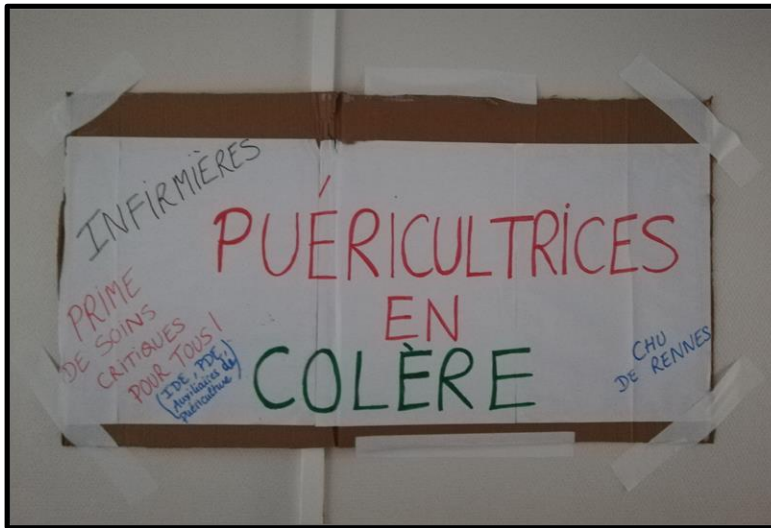 INFIRMIÈRES
PUÉRICULTRICES
EN
COLÈRE
PRIME
DE SOINS
CRITIQUES
POUR TOUS !
(IDE, PDE,
Auxiliaires de
puériculture)
CHU
DE RENNES